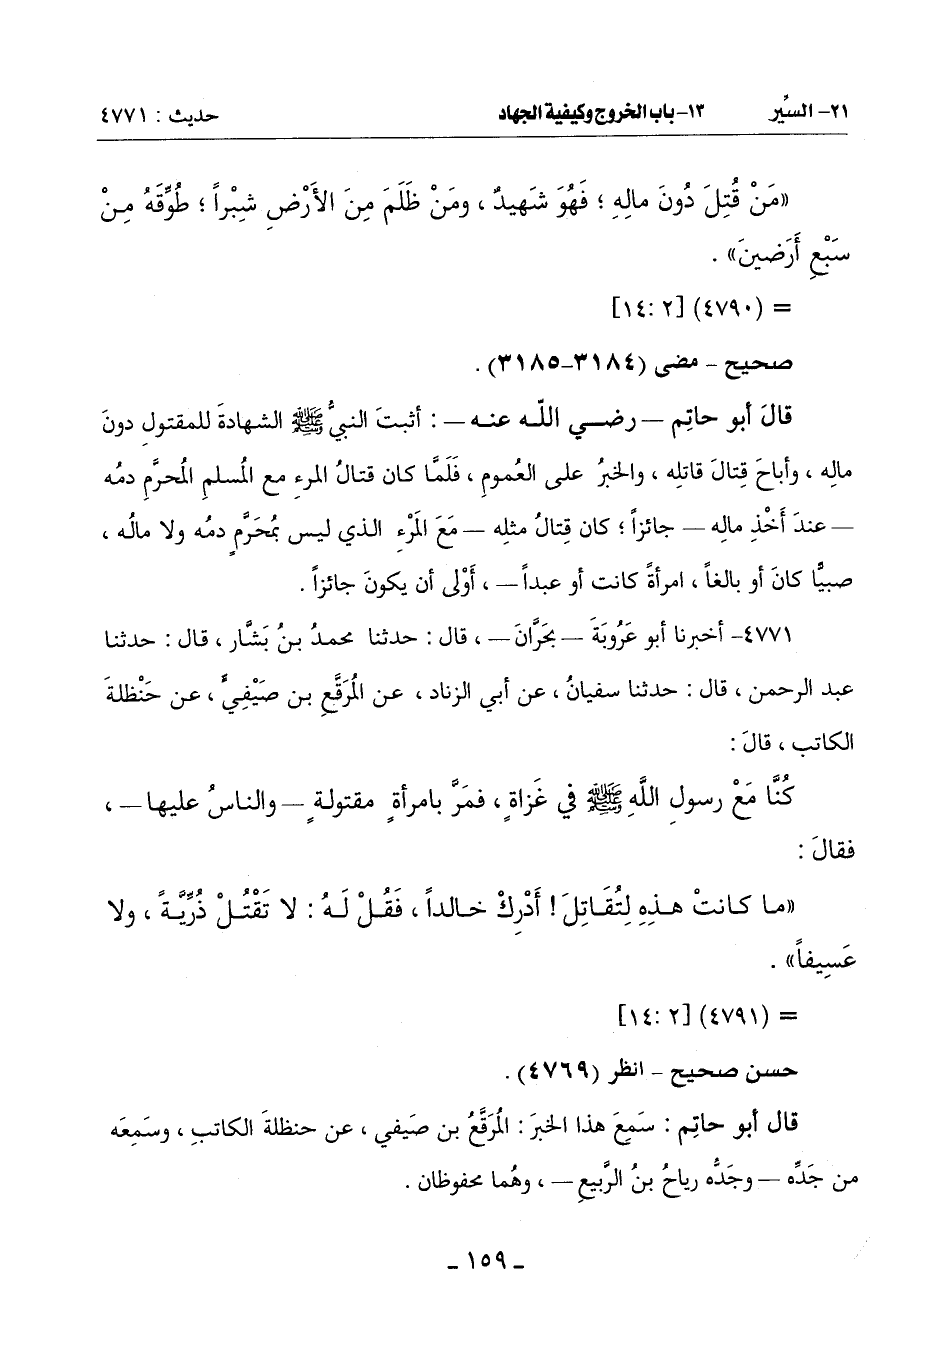 ٢١- السِّير ١٣-باب الخروج وكيفية الجهاد حديث : ٤٧٧١
«مَنْ قُتِلَ دُونَ مالِهِ ؛ فَهُوَ شَهيدٌ ، ومَنْ ظَلَمَ مِنَ الأَرْضِ شِبْراً ؛ طُوِّقَهُ مِـنْ
سَبْعِ أَرَضينَ» .
= (٤٧٩٠) [٢ :١٤]
صحيح - مضى (٣١٨٤-٣١٨٥) .
قالَ أبو حاتِم – رضـي اللّـه عنـه – : أثبتَ النبيُّ ﷺ الشهادةَ للمقتولِ دونَ
مالِه ، وأباحَ قِتالَ قاتلِه ، والخبرُ على العُمومِ ، فَلَمَّا كان قتالُ المرءِ مع المُسلمِ المُحرَّمِ دمُه
– عندَ أَخْذِ مالِه – جائزاً ؛ كان قِتالُ مثلِه – مَعَ المَرْءِ الذي ليس بمُحَرَّمٍ دمُه ولا مالُه ،
صبيًّا كانَ أو بالغاً ، امرأةً كانت أو عبداً – ، أَوْلى أن يكونَ جائزاً .
٤٧٧١- أخبرنا أبو عَرُوبَةَ – بحَرَّانَ – ، قال : حدثنا محمدُ بنُ بَشَّار ، قال : حدثنا
عبد الرحمن ، قال : حدثنا سفيانُ ، عن أبي الزناد ، عـن المُرَقَّعِ بن صَيْفِيٍّ ، عـن حَنْظلةَ
الكاتب ، قالَ :
كُنَّا مَعْ رسولِ اللَّهِ ﷺ في غَزاةٍ ، فمَرَّ بامرأةٍ مقتولةٍ – والناسُ عليها – ،
فقالَ :
«ما كـانتْ هـذِهِ لِتُقَـاتِلَ ! أَدْرِكْ خـالداً ، فَقُـلْ لَـهُ : لا تَقْتُـلْ ذُرِّيَّـةً ، ولا
عَسِيفاً» .
= (٤٧٩١) [٢ :١٤]
حسن صحيح - انظر (٤٧٦٩) .
قال أبو حاتِم : سَمِعَ هذا الخبرَ : المُرَقَّعُ بن صَيَفي ، عن حنظلةَ الكاتبِ ، وسَمِعَه
من جَدِّه – وجَدُّه رياحُ بنُ الرَّبيعِ – ، وهُما محفوظان .
- ١٥٩ -